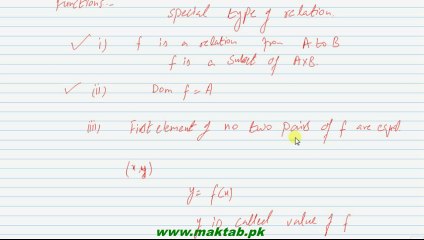 Functions:-
special type of relation.
✓ i) f is a relation from A to B
f is a subset of AxB.
✓ (ii) Dom f = A
iii) First element of no two pairs of f are equal
(x,y)
y = f(x)
y is called value of f
www.maktab.pk